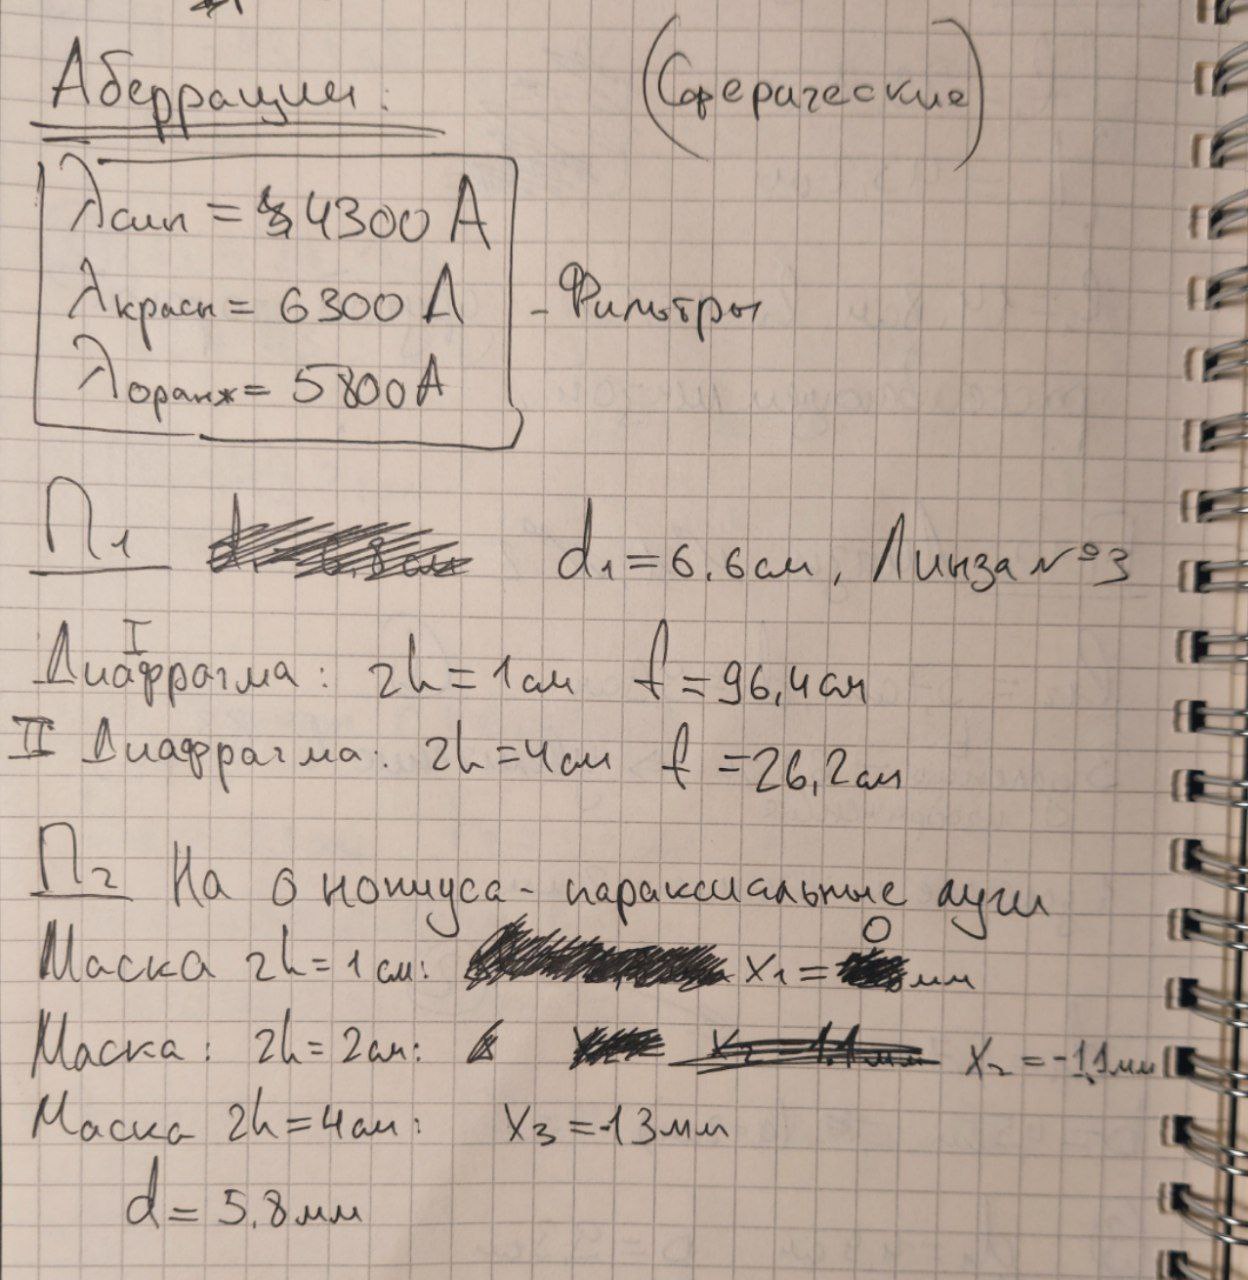 Аберрации: (Сферические)
λсин = 4300 A
λкрасн = 6300 A - Фильтры
λоранж = 5800 A
П1 d1 = 6.6 см, Линза №3
I Диафрагма: 2h = 1 см f = 96,4 см
II Диафрагма: 2h = 4 см f = 26,2 см
П2 На 0 нониуса - параксиальные лучи
Маска 2h = 1 см: x1 = 0 мм
Маска: 2h = 2 см: x2 = -1,1 мм
Маска 2h = 4 см: x3 = -13 мм
d = 5.8 мм